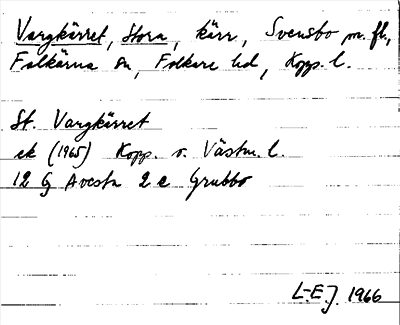 Vargkärret, Stora, kärr, Svensbo m. fl.,
Folkärna sn, Folkare hd, Kopp. l.
St. Vargkärret
ek (1965) Kopp. o. Västm. l.
12 G Avesta 2 e Grubbo
L-E.J. 1966